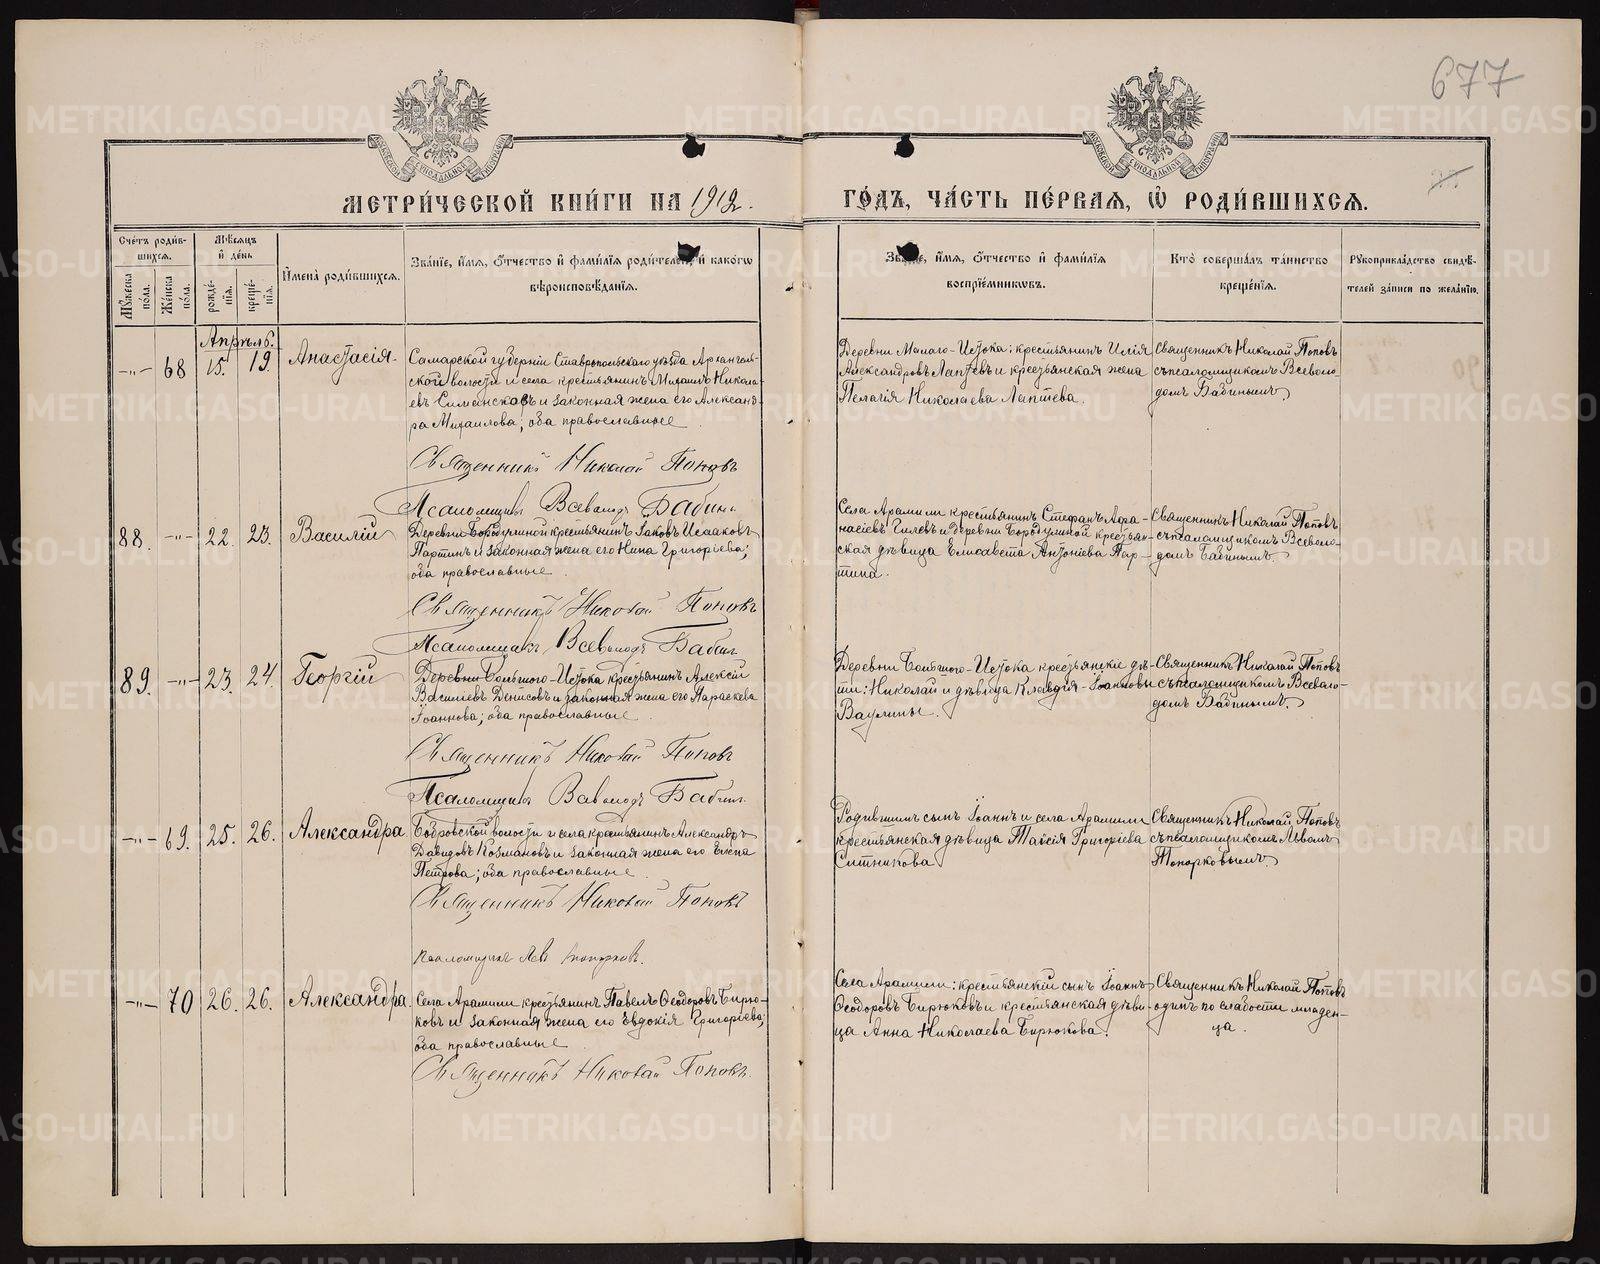 677
МЕТРИ́ЧЕСКОЙ КНИ́ГИ НА 1912.
ГО́ДЪ, ЧА́СТЬ ПЕ́РВАЯ, Ѽ РОДИ́ВШИХСЯ.
Сче́тъ роди́вшихся.
Мѣ́сяцъ и́ де́нь
Мꙋ́жеска по́ла.
Же́нска по́ла.
рожде́нїя.
креще́нїя.
И҆мена̀ роди́вшихся.
Зва́нїе, и҆́мя, ѻ҆́тчество и҆ фами́лїя роди́телей, и҆ како́гѡ вѣроисповѣ́данїя.
Зва́нїе, и҆́мя, ѻ҆́тчество и҆ фами́лїя воспрїе́мникѡвъ.
Кто̀ соверша́лъ та́инство креще́нїя.
Рꙋкоприкла́дство свидѣ́телей за́писи по жела́нїю.
Апрѣль.
-"- 68 15. 19. Анастасія
Самарской губерніи Ставропольскаго уѣзда Архангель-
ской волости и села крестьянинъ Михаилъ Никола-
евъ Симансковъ и законная жена его Александ-
ра Михаилова; оба православные.
Священникъ Николай Поповъ
Псаломщикъ Всеволодъ Бабинъ
Деревни Малаго-Истока: крестьянинъ Илія
Александровъ Лаптевъ и крестьянская жена
Пелагія Николаева Лаптева.
Священникъ Николай Поповъ
съ псаломщикомъ Всеволо-
домъ Бабинымъ
88. -"- 22. 23. Василій
Деревни Бородулиной крестьянинъ Іаковъ Исааковъ
Партинъ и законная жена его Нина Григоріева;
оба православные.
Священникъ Николай Поповъ
Псаломщикъ Всеволодъ Бабинъ
Села Арамили крестьянинъ Стефанъ Афа-
насіевъ Гилевъ и деревни Бородулиной крестьян-
ская дѣвица Елисавета Антоніева Пар-
тина.
Священникъ Николай Поповъ
съ псаломщикомъ Всеволо-
домъ Бабинымъ
89. -"- 23. 24. Георгій
Деревни Большого-Истока крестьянинъ Алексій
Василіевъ Денисовъ и законная жена его Параскева
Іоаннова; оба православные.
Священникъ Николай Поповъ
Псаломщикъ Всеволодъ Бабинъ
Деревни Большого-Истока крестьянскіе дѣ-
ти: Николай и дѣвица Клавдія Іоанновы
Ваулины.
Священникъ Николай Поповъ
съ псаломщикомъ Всеволо-
домъ Бабинымъ.
-"- 69. 25. 26. Александра
Бобровской волости и села крестьянинъ Александръ
Давидовъ Козмановъ и законная жена его Елена
Петрова; оба православные.
Священникъ Николай Поповъ
псаломщикъ Левъ Топорковъ.
Родившимъ сынъ Іоаннъ и села Арамили
крестьянская дѣвица Таисія Григоріева
Ситникова
Священникъ Николай Поповъ
съ псаломщикомъ Львомъ
Топорковымъ
-"- 70 26. 26. Александра
Села Арамили крестьянинъ Павелъ Ѳеодоровъ Бирю-
ковъ и законная жена его Евдокія Григоріева;
оба православные.
Священникъ Николай Поповъ.
Села Арамили: крестьянскій сынъ Іоаннъ
Ѳеодоровъ Бирюковъ и крестьянская дѣви-
ца Анна Николаева Бирюкова.
Священникъ Николай Поповъ
одинъ по слабости младен-
ца.
METRIKI.GASO-URAL.RU